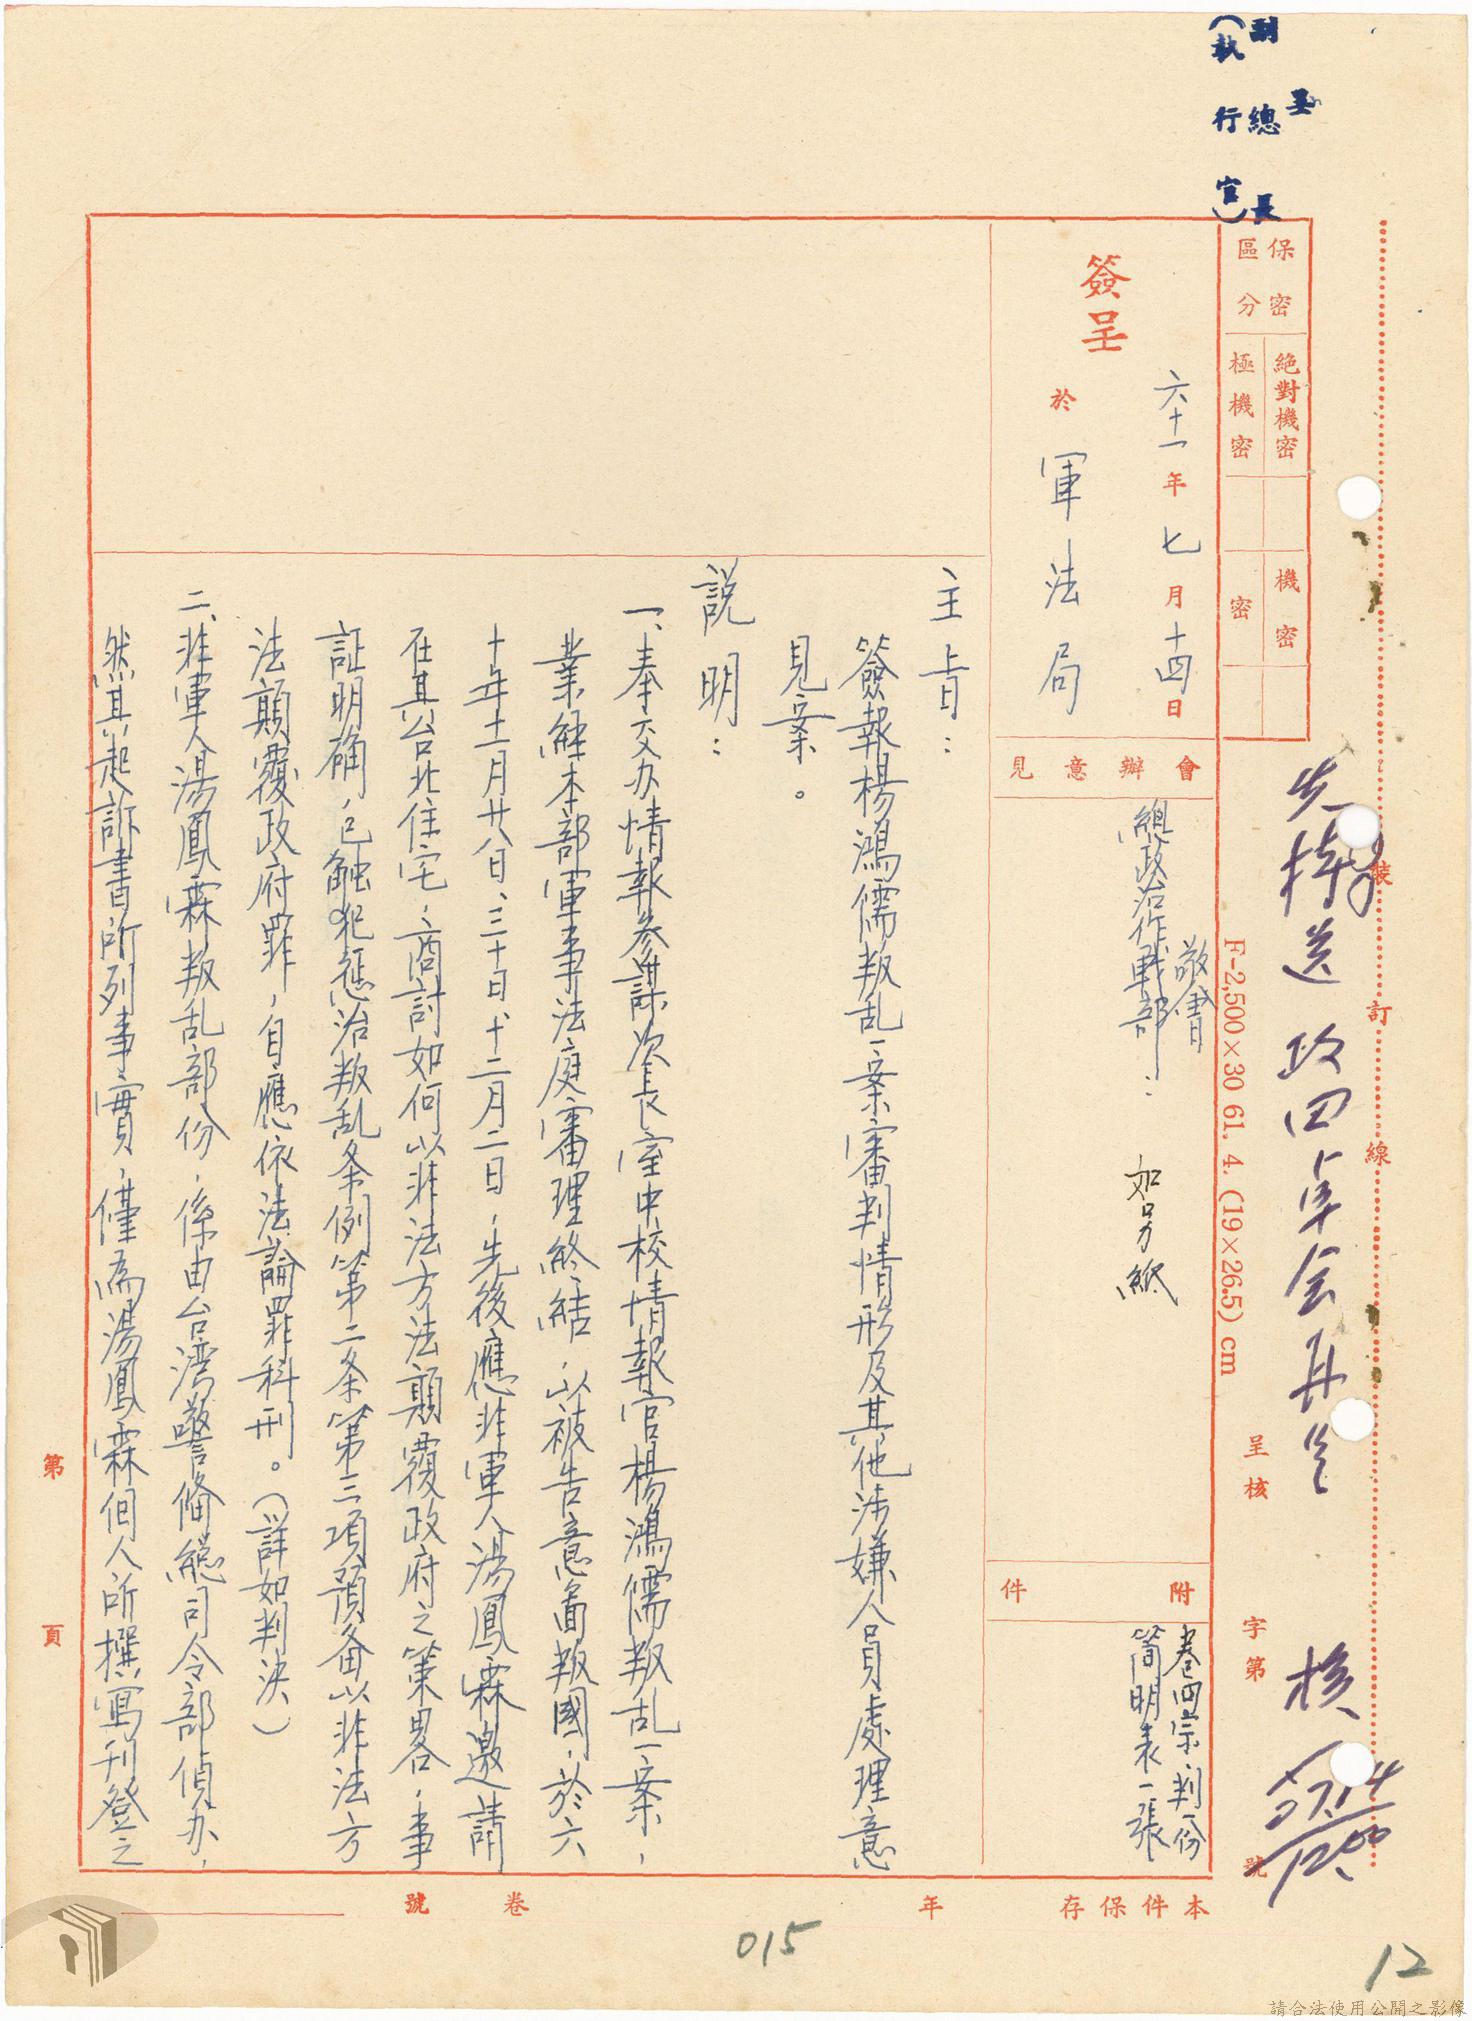 呈
副總長
（執行官）
保密區分
絕對機密
極機密
機密
密
裝訂線
先持送政四卓会再呈
核
7.14
1200
F-2,500×30 61. 4. (19×26.5) cm
呈核
字第
號
簽呈
六十一年七月十四日
於軍法局
會辦意見
敬會
總政治作戰部：
附件
卷四宗、判一份
簡明表一張
主旨：
簽報楊鴻儒叛乱一案審判情形及其他涉嫌人員處理意
見案。
說明：
一、奉交办情報參謀次長室中校情報官楊鴻儒叛乱一案，
業經本部軍事法庭審理終結，以被告意啚叛國，於六
十年十一月廿八日、三十日、十二月二日，先後應非軍人湯鳳霖邀請
在其台北住宅，商討如何以非法方法顛覆政府之策畧，事
証明确，已触犯惩治叛乱条例第二条第三項預备以非法方
法顛覆政府罪，自應依法論罪科刑。（詳如判決）
二、非軍人湯鳳霖叛乱部份，係由台湾警俻總司令部偵办，
然其起訴書所列事實，僅為湯鳳霖個人所撰寫刊登之
第 頁
本件保存 年 卷 號
015
12
請合法使用公開之影像